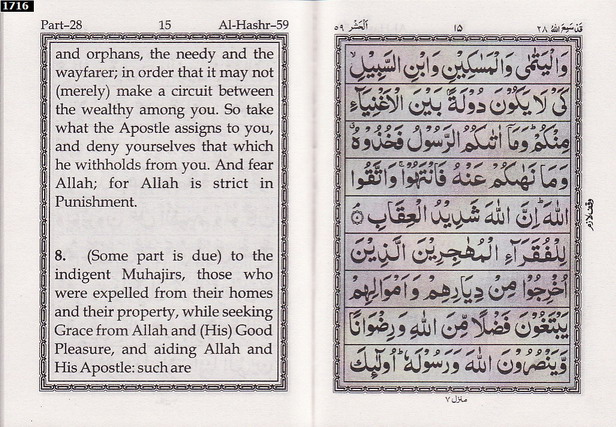 1716
Part–28 15 Al-Hashr–59
and orphans, the needy and the
wayfarer; in order that it may not
(merely) make a circuit between
the wealthy among you. So take
what the Apostle assigns to you,
and deny yourselves that which
he withholds from you. And fear
Allah; for Allah is strict in
Punishment.
8. (Some part is due) to the
indigent Muhajirs, those who
were expelled from their homes
and their property, while seeking
Grace from Allah and (His) Good
Pleasure, and aiding Allah and
His Apostle: such are
قَدْ سَمِعَ اللهُ ٢٨ ١٥ اَلْحَشْر ٥٩
وَالْيَتٰمٰى وَالْمَسٰكِيْنِ وَابْنِ السَّبِيْلِ
كَىْ لَا يَكُوْنَ دُوْلَةًۢ بَيْنَ الْاَغْنِيَآءِ
مِنْكُمْ وَمَاۤ اٰتٰىكُمُ الرَّسُوْلُ فَخُذُوْهُ
وَمَا نَهٰىكُمْ عَنْهُ فَانْتَهُوْا وَاتَّقُوا
اللهَ اِنَّ اللهَ شَدِيْدُ الْعِقَابِ
لِلْفُقَرَآءِ الْمُهٰجِرِيْنَ الَّذِيْنَ
اُخْرِجُوْا مِنْ دِيَارِهِمْ وَاَمْوَالِهِمْ
يَبْتَغُوْنَ فَضْلًا مِّنَ اللهِ وَرِضْوَانًا
وَّيَنْصُرُوْنَ اللهَ وَرَسُوْلَهٗ اُولٰٓئِكَ
وقف لازم
منزل ٧